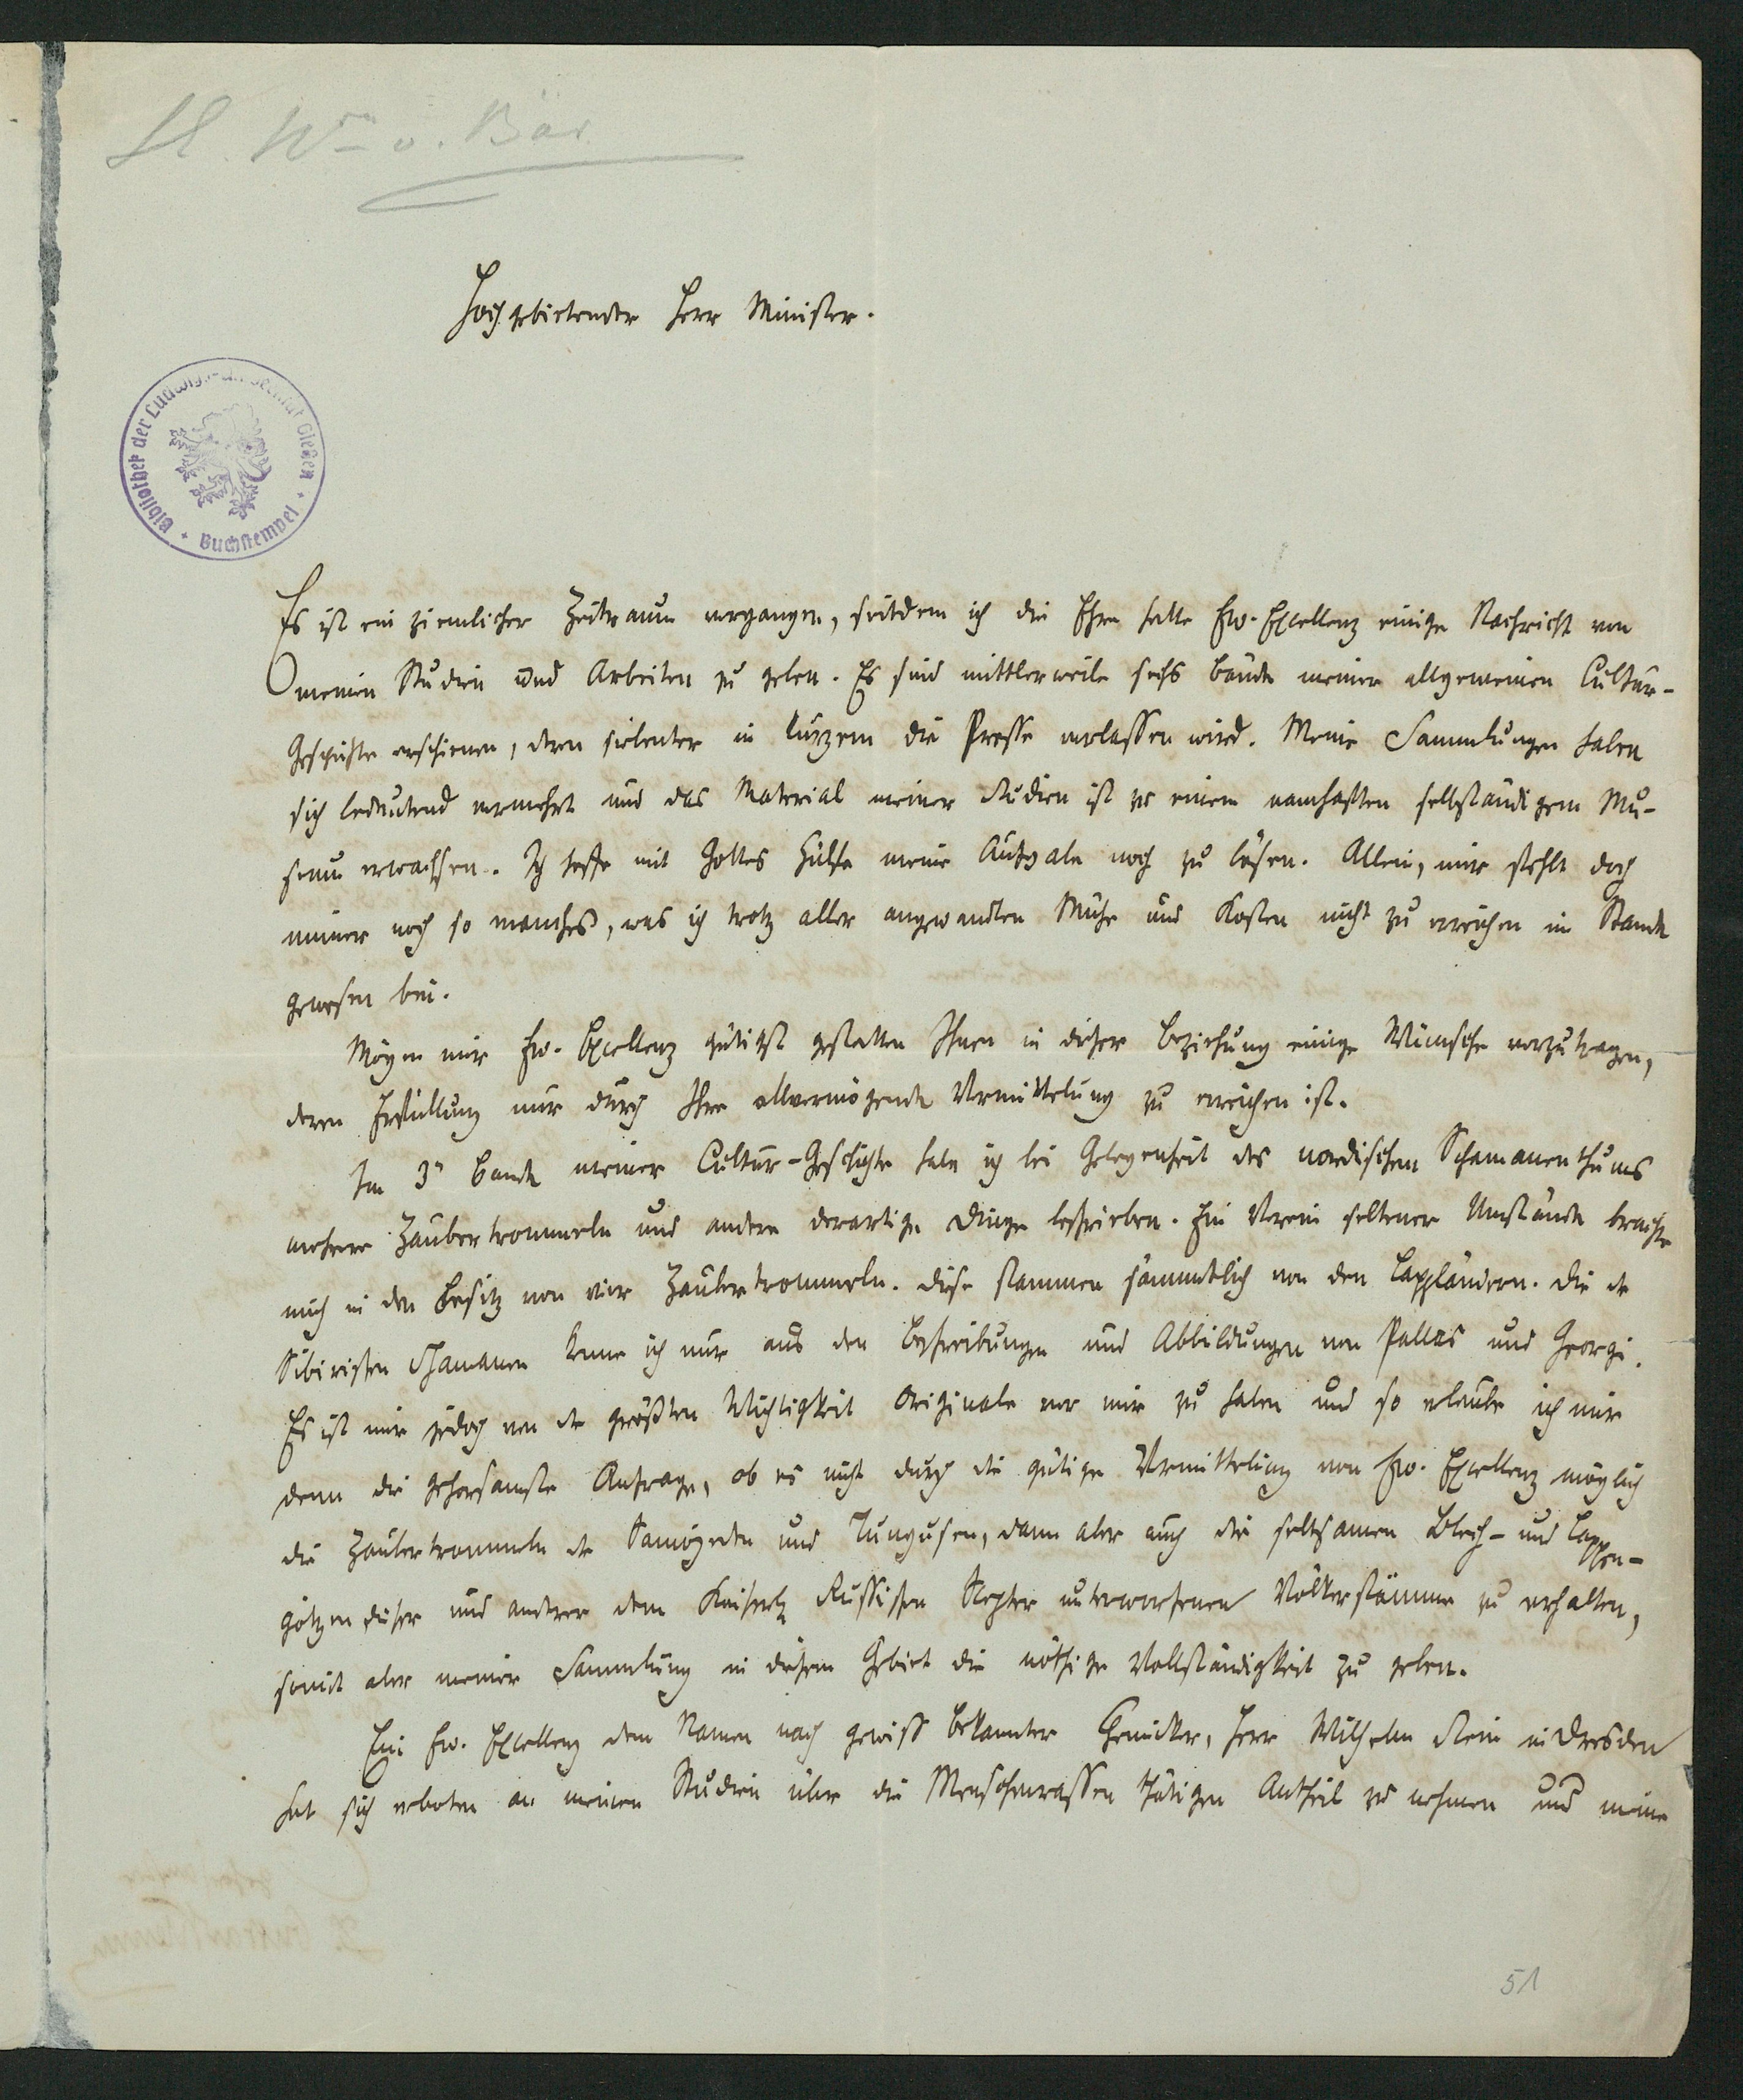 H. W v. Bär
Hochgebietender Herr Minister.
Bibliothek der Ludwigs-Universität Gießen
Buchstempel
Es ist ein ziemlicher Zeitraum vergangen, seitdem ich die Ehre hatte Ew. Excellenz einige Nachricht von
meinen Studien und Arbeiten zu geben. Es sind mittlerweile sechs Bände meiner allgemeinen Cultur-
Geschichte erschienen, deren siebenter in kurzem die Presse verlassen wird. Meine Sammlungen haben
sich bedeutend vermehrt und das Material meiner Studien ist zu einem namhaften selbständigem Mu-
seum erwachsen. Ich hoffe mit Gottes Hülfe meine Aufgabe noch zu lösen. Allein, mir fehlt doch
immer noch so manches, was ich trotz aller angewandten Mühe und Kosten nicht zu erreichen im Stande
gewesen bin.
Mögen mir Ew. Excellenz gütigst gestatten Ihnen in dieser Beziehung einige Wünsche vorzutragen,
deren Erfüllung nur durch Ihre allvermögende Vermittelung zu erreichen ist.
Im 3n Bande meiner Cultur-Geschichte habe ich bei Gelegenheit des nordischen Schamanenthums
mehrere Zaubertrommeln und andere derartige Dinge beschrieben. Ein Verein seltener Umstände brachte
mich in den Besitz von vier Zaubertrommeln. Diese stammen sämmtlich von den Lappländern. Die der
Sibirischen Schamanen kenne ich nur aus den Beschreibungen und Abbildungen von Pallas und Georgi.
Es ist mir jedoch von der größten Wichtigkeit Originale vor mir zu haben und so erlaube ich mir
denn die gehorsamste Anfrage, ob es nicht durch die gütige Vermittelung von Ew. Excellenz möglich
die Zaubertrommeln der Samojeden und Tungusen, dann aber auch die seltsamen Blech- und Lappen-
götzen dieser und anderer dem Kaiserlh Russischen Scepter unterworfenen Völkerstämme zu erhalten,
somit aber meiner Sammlung in diesem Gebiet die nöthige Vollständigkeit zu geben.
Ein Ew. Excellenz dem Namen nach gewiss bekannter Chemiker, Herr Wilhelm Stein in Dresden
hat sich erboten an meinen Studien über die Menschenrassen thätigen Antheil zu nehmen und meine
51